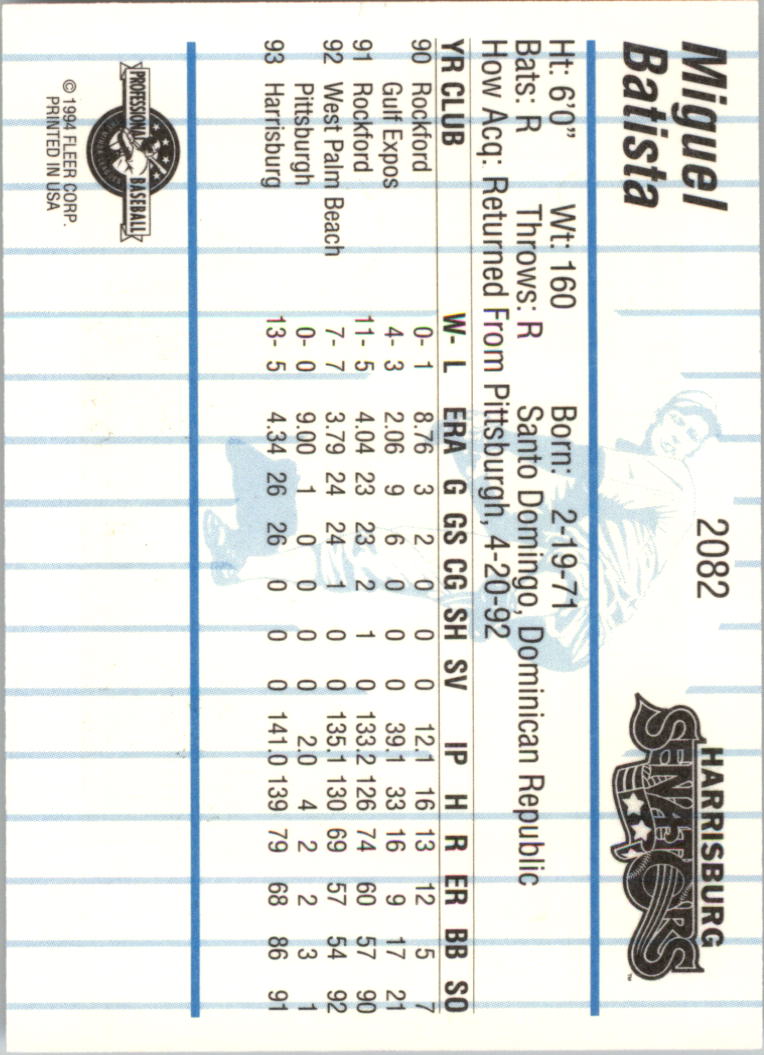 Miguel
Batista
2082
HARRISBURG
SENATORS
™
Ht: 6'0" Wt: 160 Born: 2-19-71
Bats: R Throws: R Santo Domingo, Dominican Republic
How Acq: Returned From Pittsburgh, 4-20-92
YR CLUB W- L ERA G GS CG SH SV IP H R ER BB SO
90 Rockford 0- 1 8.76 3 2 0 0 0 12.1 16 13 12 5 7
Gulf Expos 4- 3 2.06 9 6 0 0 0 39.1 33 16 9 17 21
91 Rockford 11- 5 4.04 23 23 2 1 0 133.2 126 74 60 57 90
92 West Palm Beach 7- 7 3.79 24 24 1 0 0 135.1 130 69 57 54 92
Pittsburgh 0- 0 9.00 1 0 0 0 0 2.0 4 2 2 3 1
93 Harrisburg 13- 5 4.34 26 26 0 0 0 141.0 139 79 68 86 91
PROFESSIONAL BASEBALL
© 1994 FLEER CORP.
PRINTED IN USA